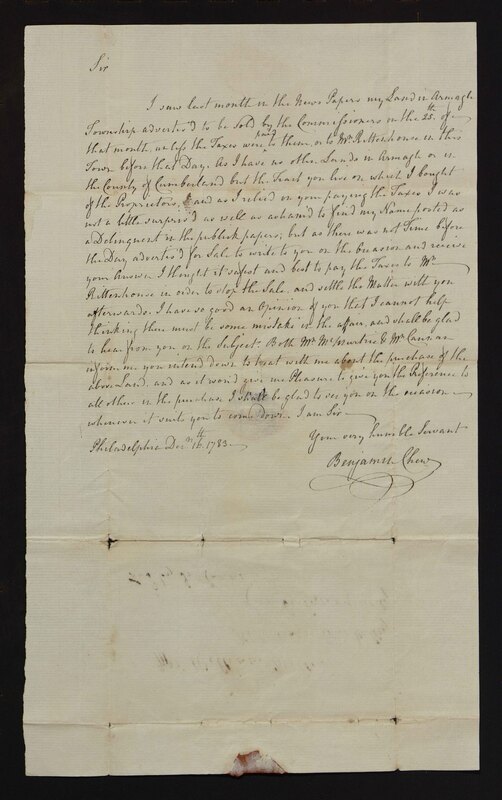 Sir
I saw last month in the News Papers my Land in Armagh
Township advertis'd to be sold by the Commissioners on the 25th. of
that month unless the Taxes were paid to them, or to Mr. Rittenhouse in this
Town before that Day. As I have no other Lands in Armagh or in
the County of Cumberland but the Tract you live on which I bought
of the Proprietors, and as I relied on your paying the Taxes I was
not a little surpris'd as well as asham'd to find my Name posted as
a Delinquent in the publick papers; but as there was not Time before
the Day advertis'd for Sale to write to you on the Occasion and receive
your Answer I thought it safest and best to pay the Taxes to Mr.
Rittenhouse in order to stop the Sale, and settle the Matter with you
afterwards. I have so good an Opinion of you that I cannot help
thinking there must be some mistake in the affair, and shall be glad
to hear from you on the Subject. Both Mr. & Mr.
inform me you intend down to treat with me about the purchase of the
above Land. and as it would give me Pleasure to give you the Preference to
all others in the purchase I shall be glad to see you on the occasion
whenever it suits you to come Down. I am Sir
Your very humble Servant
Philadelphia Decr. 16th. 1783.
Benjamin Chew